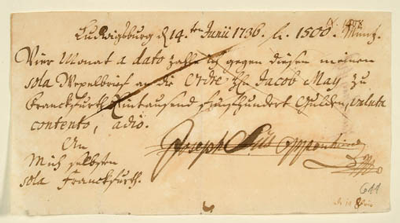 Ludwigsburg d 14ten Junii 1736. fl. 1500. Müntz.
Vier Monat a dato zahle ich gegen diesen meinen
sola Wexelbrief an die Ordre H. Jacob May zu
Franckfurth Eintausend fünfhundert Gulden, valuta
contento, adio.
Joseph Süs Oppenheimer
An
Mich selbsten
sola Franckfurth.
644